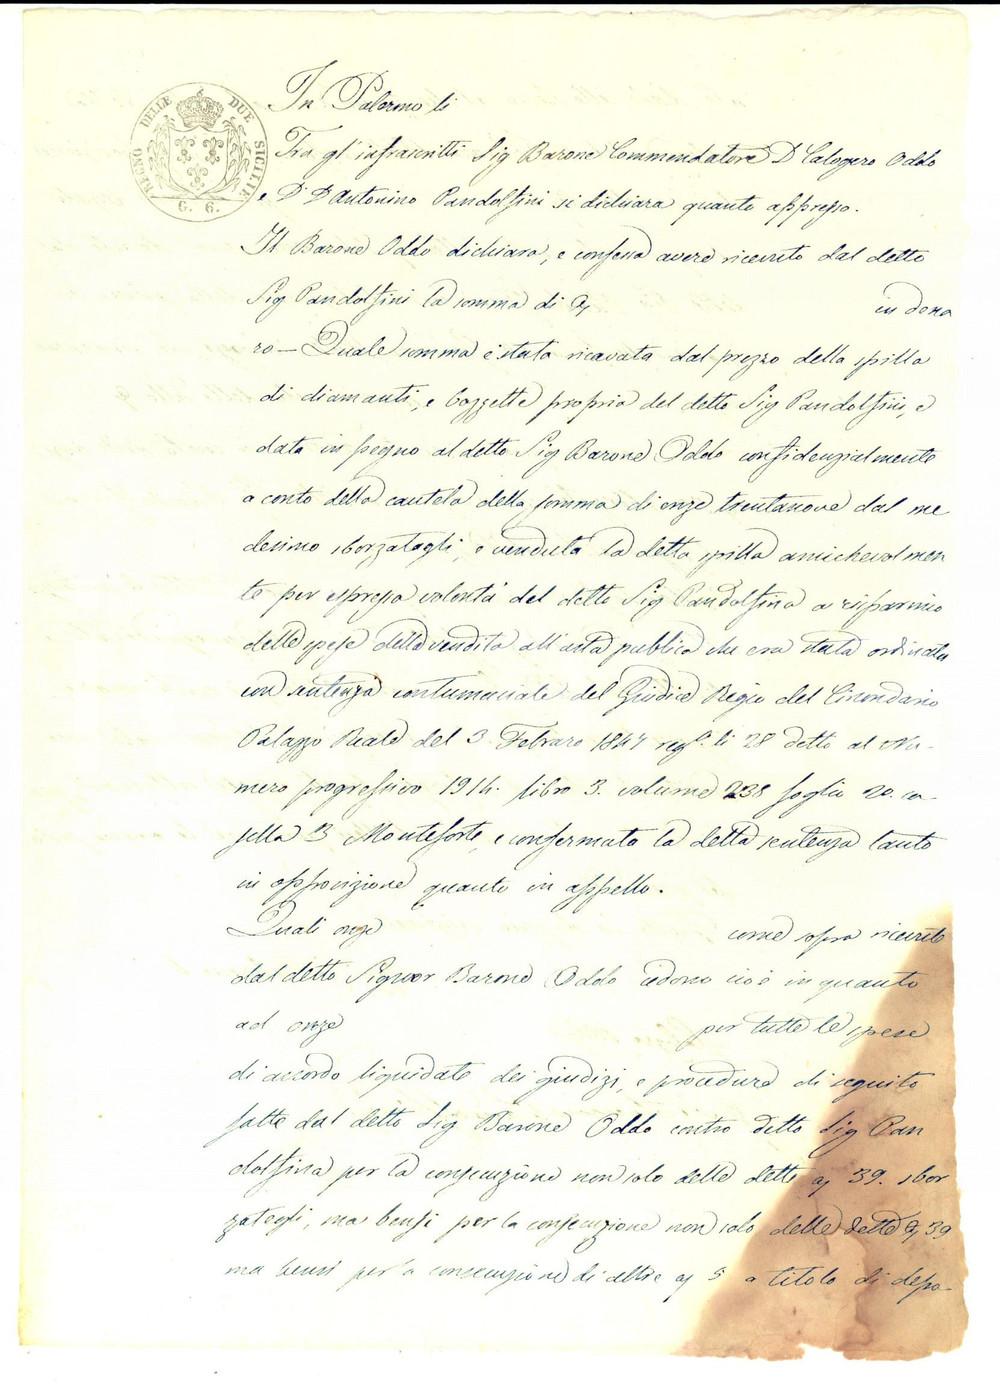 REGNO DELLE DUE SICILIE
G. 6.
In Palermo li
Tra gl'infrascritti Sig Barone Commendatore D Calogero Oddo
e D. D Antonino Pandolfini si dichiara quanto appresso.
Il Barone Oddo dichiara, e confessa avere ricevuto dal detto
Sig Pandolfini la somma di in dena
ro – Quale somma è stata ricavata dal prezzo della spilla
di diamanti, e bozzette propria del detto Sig Pandolfini, e
data in pegno al detto Sig Barone Oddo confidenzialmente
a conto della cautela della somma di onze trentanove dal me
desimo sborzatagli, e venduta la detta spilla amichevolmen
te per espressa volontà del detto Sig Pandolfina a risparmio
delle spese della vendita all'asta pubblica che era stata ordinata
con sentenza contumaciale del Giudice Regio del Circondario
Palazzo Reale del 3 Febraro 1847 reg.ta li 28 detto al Nu-
mero progressivo 1914. libro 3. volume 238 foglio 20. ca-
sella 3 Monteforte, e confermata la detta sentenza tanto
in opposizione quanto in appello.
Quali onze come sopra ricevute
dal detto Signor Barone Oddo cioè in quanto
ad onze per tutte le spese
di accordo liquidate dei giudizi, e procedure di seguito
fatte dal detto Sig Barone Oddo contro detto Sig Pan
dolfina per la consecuzione non solo delle dette 39. sbor
zategli, ma bensi per la consecuzione non solo delle dette 39
ma bensi per la consecuzione di altre 5 a titolo di depo-